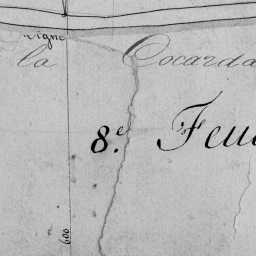 vigne
la Cocarda
8.e Feu
600